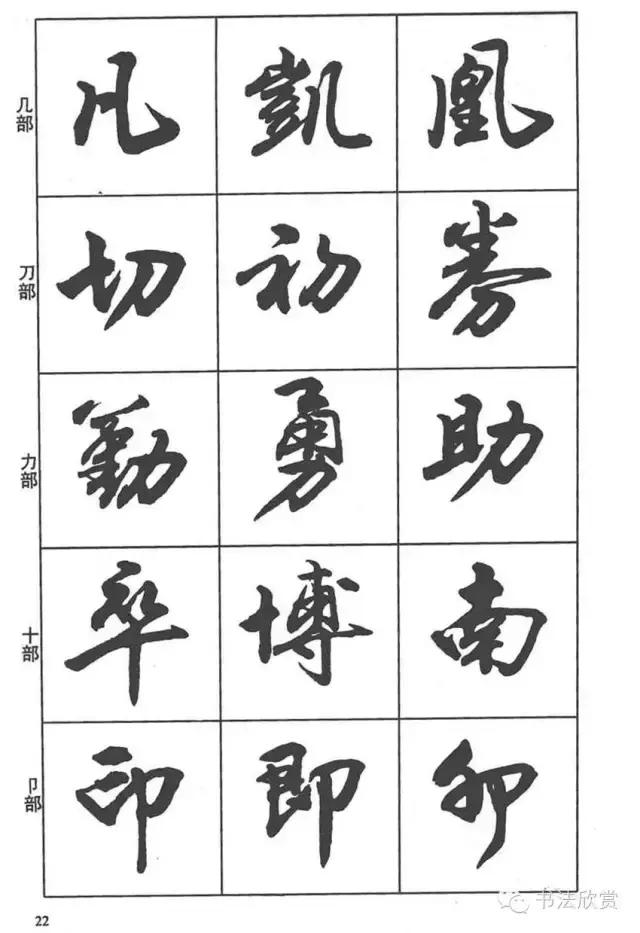 几部 凡 凱 凰
刀部 切 初 券
力部 勤 勇 助
十部 卒 博 南
卩部 印 即 卯
书法欣赏
22